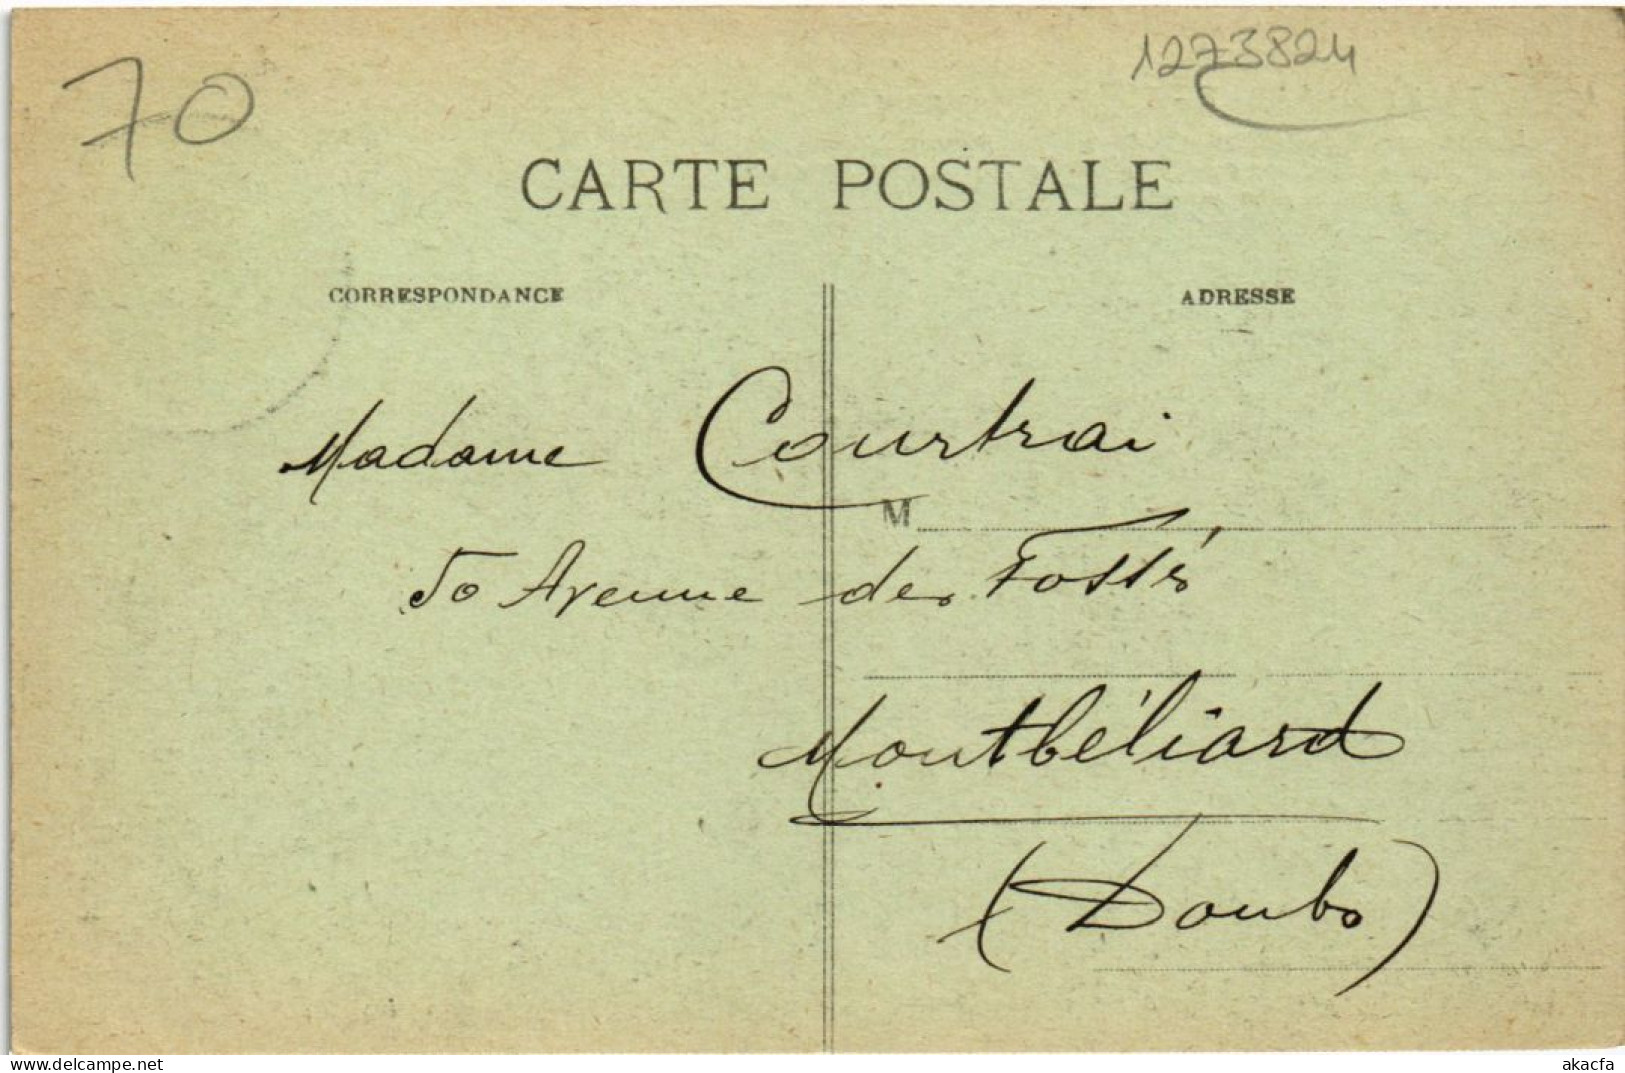 70
1273824
CARTE POSTALE
CORRESPONDANCE
ADRESSE
Madame Courtrai
M
50 Avenue des Fossés
Montbéliard
(Doubs)
www.delcampe.net
akacfa